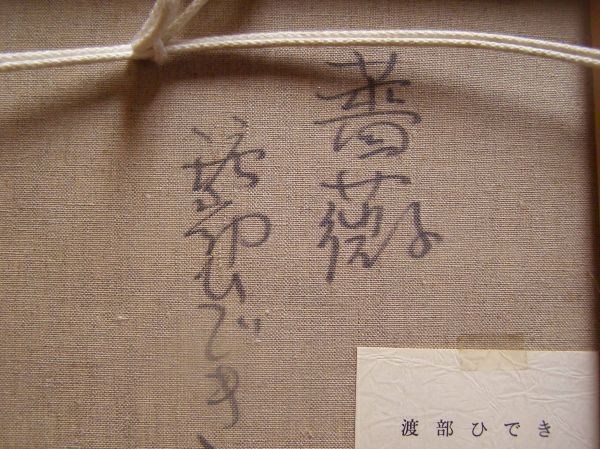 薔薇
渡部ひでき
渡部ひでき